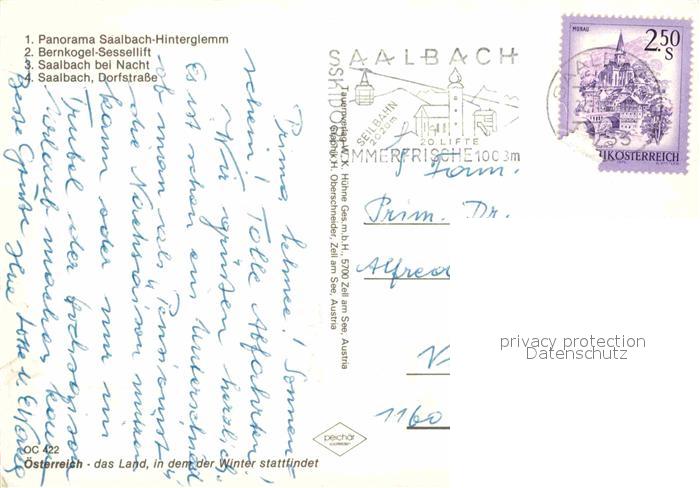 1. Panorama Saalbach-Hinterglemm
2. Bernkogel-Sessellift
3. Saalbach bei Nacht
4. Saalbach, Dorfstraße
Prima Schnee! Sonnen-
schein! Tolle Abfahrten!
Wir grüßen herzlich.
Es ist schon ein Unterschied
ob man als Pensionist
die Nachsaison nützen
kann oder nur im
Trubel der Hochsaison
Urlaub machen kann
Beste Grüße
OC 422
Österreich - das Land, in dem der Winter stattfindet
Tauernverlag W. K. Hühne Ges.m.b.H., 5700 Zell am See, Austria
Graphik H. Oberschneider, Zell am See, Austria
SAALBACH
SEILBAHN
2020m
20 LIFTE
SOMMERFRISCHE 1003m
MURAU
2.50
S
REPUBLIK ÖSTERREICH
Fam.
Prim. Dr.
Alfred
1160
privacy protection
Datenschutz